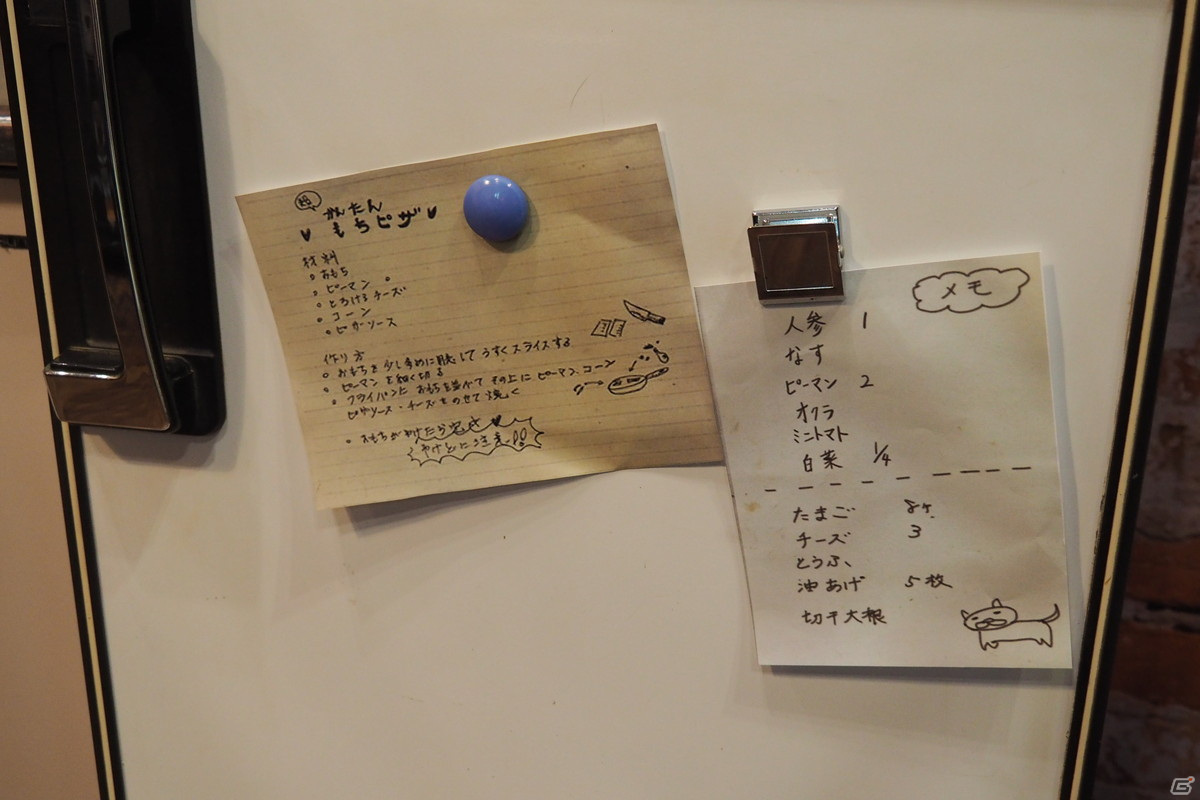 かんたん
もちピザ
材料
おもち
ピーマン
とろけるチーズ
コーン
ピザソース
作り方
おもちを少し多めに用意してうすくスライスする
ピーマンを細く切る
フライパンに おもちを並べて その上に ピーマン、コーン
ピザソース・チーズをのせて焼く
おもちがやけたら完成
やけどに注意!!
メモ
人参 1
なす
ピーマン 2
オクラ
ミニトマト
白菜 1/4
たまご 8ヶ
チーズ 3
とうふ
油あげ 5枚
切干大根